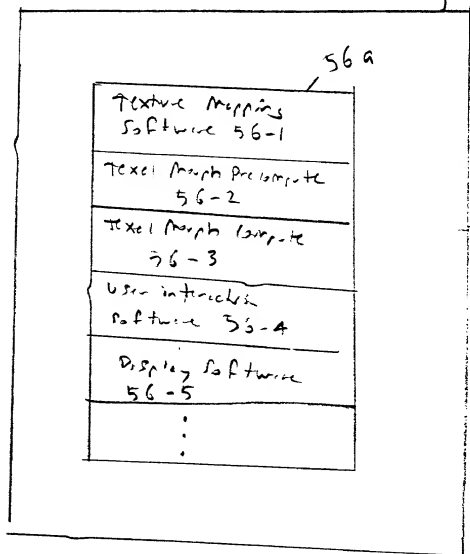 56a
Texture Mapping
Software 56-1
Texel Morph Precompute
56-2
Texel Morph Compute
56-3
User interaction
software 56-4
Display Software
56-5